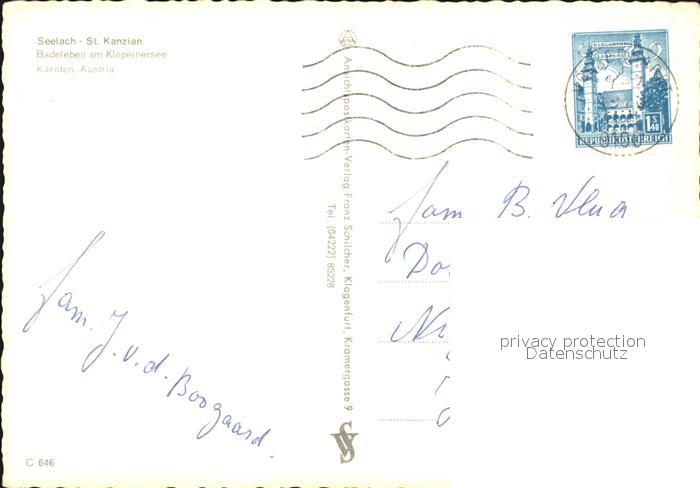 Seelach - St. Kanzian
Badeleben am Klopeinersee
Kärnten, Austria
Ansichtspostkarten-Verlag Franz Schilcher, Klagenfurt, Kramergasse 9
Tel. (04222) 85228
REPUBLIK ÖSTERREICH
1.40
S
Fam B.
Fam. J. v. d. Boogaard.
privacy protection
Datenschutz
C 646